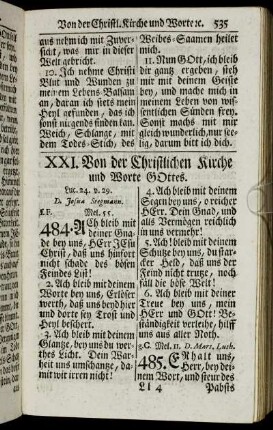 Von der Christl. Kirche und Worte ꝛc. 535
aus nehm ich mit Zuver-
sicht, was mir in dieser
Welt gebricht.
10. Ich nehme Christi
Blut und Wunden zu
meinem Lebens-Balsam
an, daran ich stets mein
Heyl gefunden, das ich
sonst nirgends finden kan.
Weich, Schlange, mit
dem Todes-Stich, des
Weibes-Saamen heilet
mich.
11. Nun GOtt, ich bleib
dir gantz ergeben, steh
mir mit deinem Geiste
bey, und mache mich in
meinem Leben von wis-
sentlichen Sünden frey.
Sonst machs mit mir
gleich wunderlich, nur see-
lig, darum bitt ich dich.
XXI. Von der Christlichen Kirche
und Worte GOttes.
Luc. 24. v. 29.
D. Josua Stegmann.
Mel. 55.
484. Ach bleib mit
deiner Gna-
de bey uns, HErr JEsu
Christ, daß uns hinfort
nicht schade des bösen
Feindes List!
2. Ach bleib mit deinem
Worte bey uns, Erlöser
werth, daß uns beyd hier
und dorte sey Trost und
Heyl beschert.
3. Ach bleib mit deinem
Glantze, bey uns du wer-
thes Licht. Dein War-
heit uns umschantze, da-
mit wir irren nicht!
4. Ach bleib mit deinem
Segen bey uns, o reicher
HErr. Dein Gnad, und
alls Vermögen reichlich
in uns vermehr!
5. Ach! bleib mit deinem
Schutze bey uns, du star-
cker Held, daß uns der
Feind nicht trutze, noch
fäll die böse Welt!
6. Ach bleib mit deiner
Treue bey uns, mein
HErr und GOtt! Be-
ständigkeit verleihe, hilff
uns aus aller Noth.
Mel. 11. D. Mart. Luth.
485. ERhalt uns,
Herr, bey dei-
nem Wort, und steur des
Ll 4 Pabsts